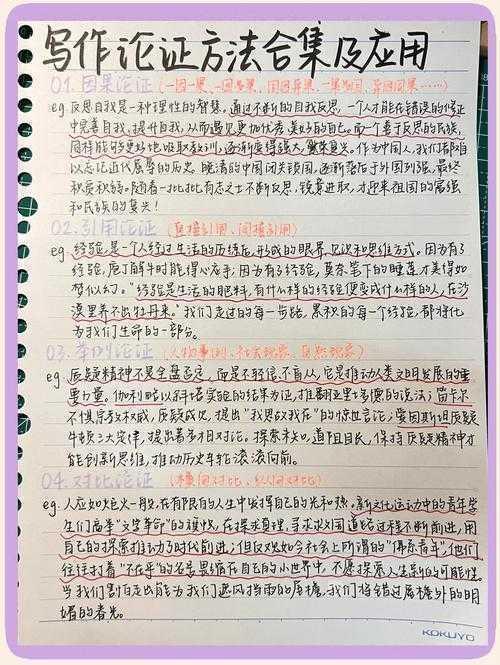 写作论证方法合集及应用
01. 因果论证 (一因一果、一因多果、同因异果、一果多因、异因同果……)
eg. 反思自我是一种理性的智慧。通过不断的自我反思，一个人才能在错误的修正
中完善自我、提升自我，从而遇见更加优秀、美好的自己。而一个善于反思的民族，
同样能够更好地吸取教训，逐渐变得强大、繁荣复兴。作为中国人，我们都难
以忘记近代屈辱的历史，晚清的中国闭关锁国，逐渐落后于外国列强，最终
积贫积弱。随着一批批有志之士不断反思，锐意进取，才迎来祖国的富强
和民族的复兴！
02. 引用论证 (直接引用、间接引用)
eg. 经验，是一个人经过生活的历练后，形成的眼界、见识和思维方式。因为有了
经验，庖丁解牛时能得心应手；因为有了经验，莫奈笔下的睡莲才美得如
梦似幻。“经验是生活的肥料，有什么样的经验便变成什么样的人，在沙
漠里养不出牡丹来。”我们走过的每一步路，累积的每一个经验，都将化
为我们生命的一部分。
03. 举例论证 (人物事例、社会现象、自然现象)
eg. 质疑精神不是全盘否定，而是不轻信、不盲从，它是推动人类文明发展的重
要力量。伽利略以斜塔实验的结果为证，推翻亚里士多德的说法；笛卡尔
不惧宗教权威，质疑成见，提出“我思故我在”的惊世言论；爱因斯坦质疑
牛顿三大定律，提出著名相对论。探索未知，道阻且长，保持质疑精神才
能创新思维，推动历史车轮滚滚向前。
04. 对比论证 (横向对比、纵向对比)
eg. 人应如炬火一般，在有限的人生中发挥自己的光和热。新文化运动中的青年学
生们高举“文学革命”的旗帜，在探求真理、寻求求国道路过程不断前进，用
自己的探索推动了时代前进；但反观如今社会上所谓的“佛系青年”，他们
往往打着“不在乎”的名号畏缩在自己的小世界中，不愿探索人生新的可能性。
当我们害怕走出能为我们遮风挡雨的屋檐，我们将错过屋檐外的明
媚的春光。
KOKUYO